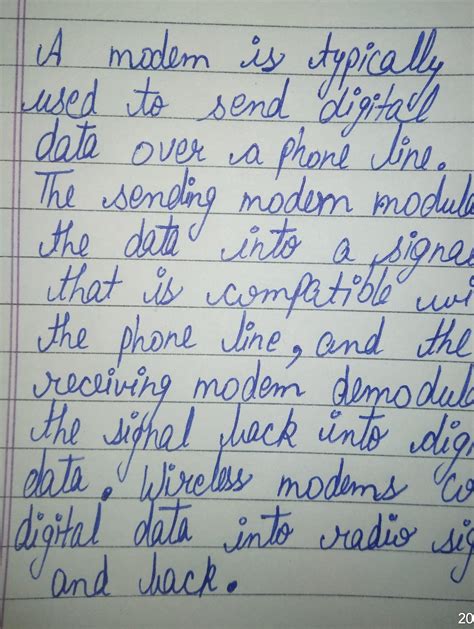 A modem is typically
used to send digital
data over a phone line.
The sending modem modula
the data into a signa
that is compatible wi
the phone line, and the
receiving modem demodula
the signal back into digi
data. Wireless modems co
digital data into radio sig
and back.
20